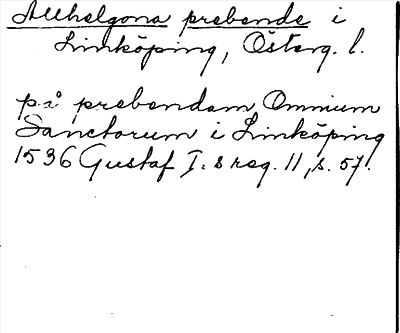 Allhelgona prebende i
Linköping, Österg. l.
på prebendam Omnium
Sanctorum i Linköping
1536 Gustaf I:s reg. 11, s. 57.